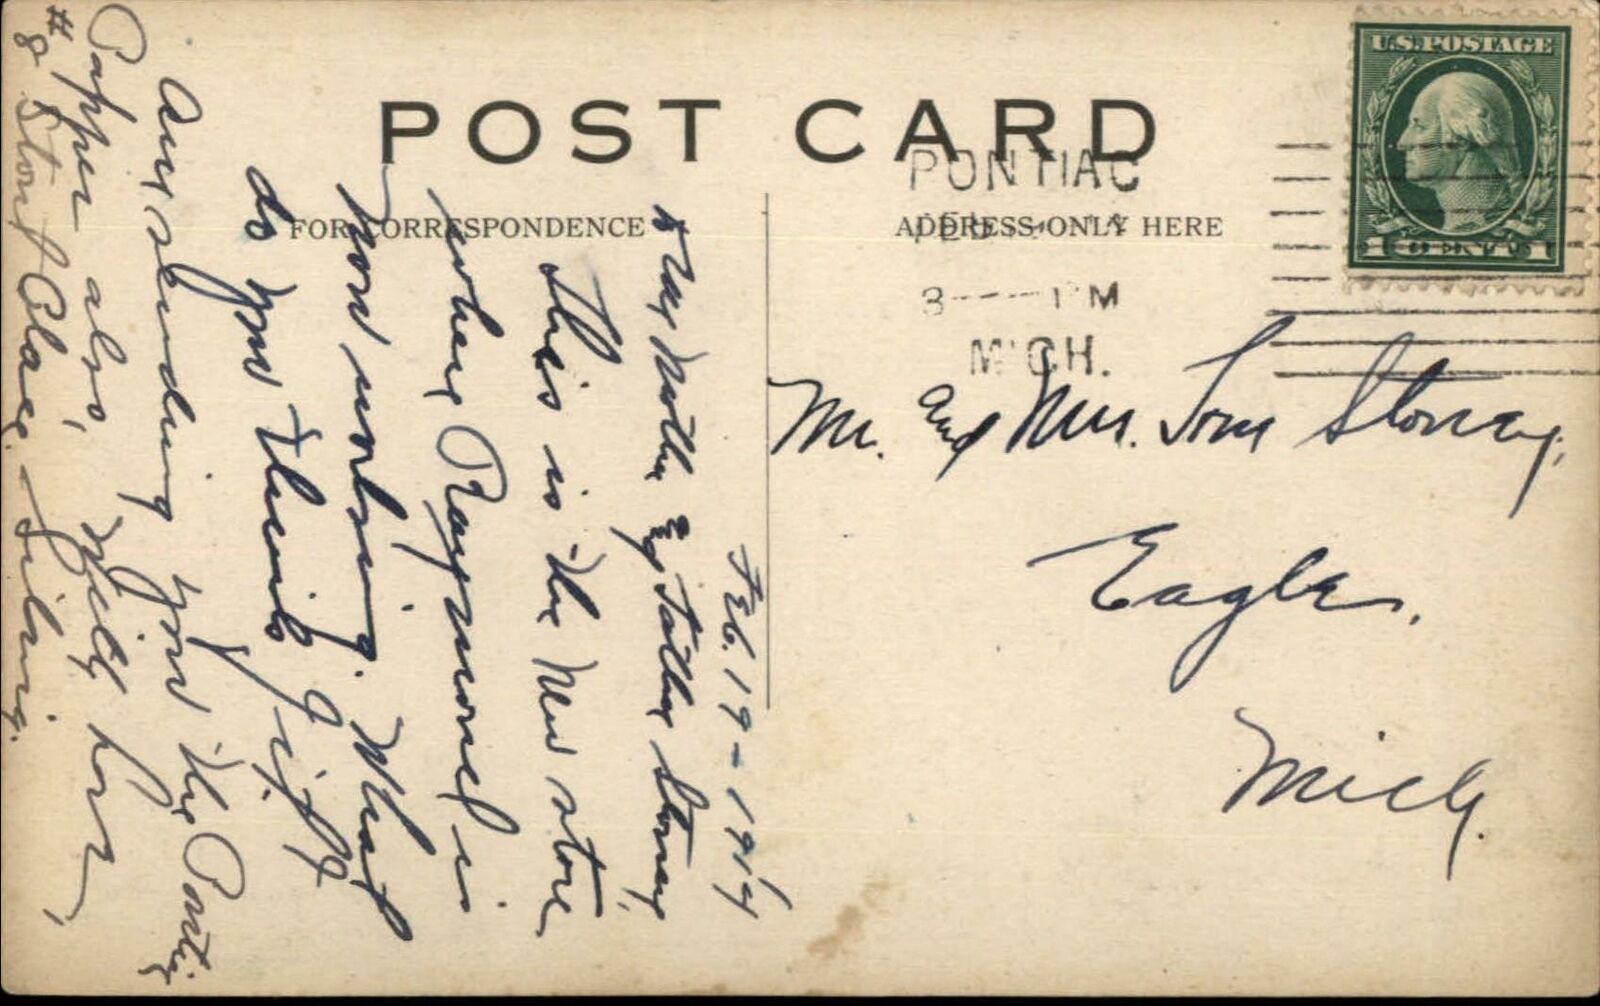 POST CARD
FOR CORRESPONDENCE
ADDRESS ONLY HERE
U.S. POSTAGE
1 CENT 1
PONTIAC
3 PM
MICH.
Mr. and Mrs. Tom Storey,
Eagle,
Mich.
Feb. 19 - 1914
Dear Mother and Father Storey,
This is the New store
where Raymond is
now working. What
do you think of it?
Am sending you the Pontiac
Papper also, Will
#8 Stout Place